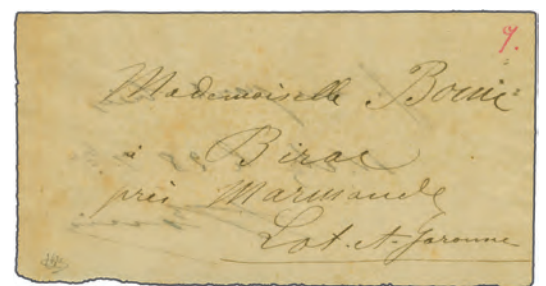 9.
Mademoiselle
à Birac
près Marmande
Lot-et-Garonne